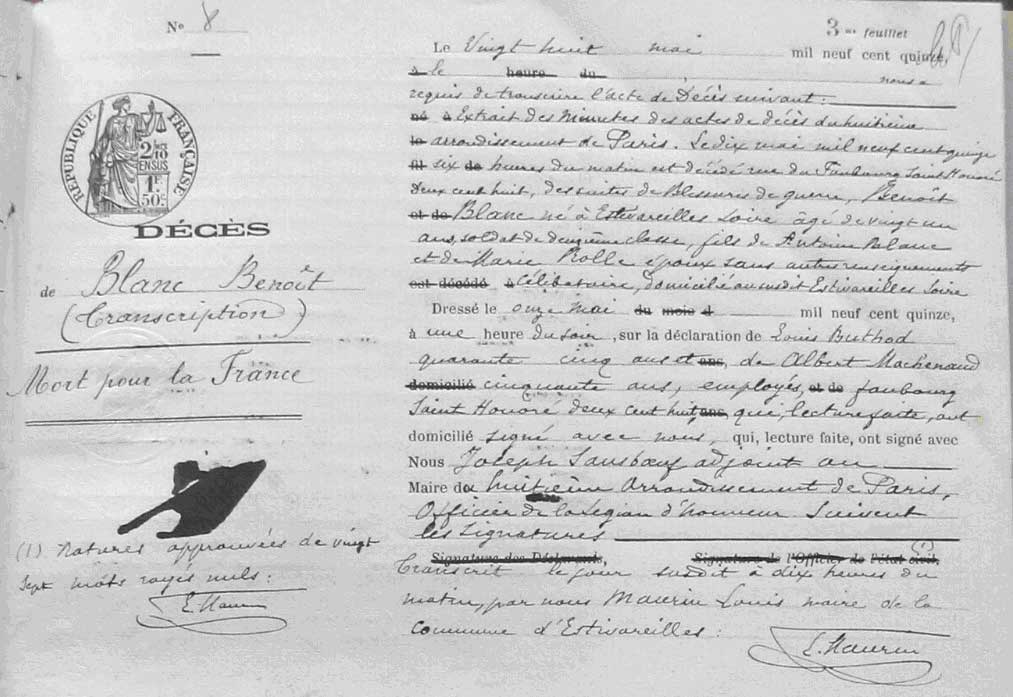 N° 8
3me feuillet
Le Vingt huit mai mil neuf cent quinze,
à le heure du nous a
requis de transcrire l'acte de Décès suivant :
né à Extrait des Minutes des actes de décès du huitième
le arrondissement de Paris. Le dix mai mil neuf cent quinze
fil six de heures du matin est décédé rue du Faubourg Saint Honoré
deux cent huit, des suites de Blessures de guerre, Benoît
et de Blanc né à Estivareilles Loire âgé de vingt un
ans, soldat de deuxième classe, fils de Antoine Blanc
et de Marie Rolle époux sans autres renseignements
est décédé à Célibataire, domicilié au susdit Estivareilles Loire
Dressé le onze mai du mois d mil neuf cent quinze,
à une heure du soir, sur la déclaration de Louis Buthod
quarante cinq ans et ans, de Albert Machenaud
domicilié cinquante ans, employés, et de faubourg
Saint Honoré deux cent huit ans, que, lecture faite, ont
domicilié signé avec nous, qui, lecture faite, ont signé avec
Nous Joseph Sansbœuf adjoint au
Maire du huitième Arrondissement de Paris,
Officier de la Légion d'honneur Suivent
les Signatures
Signature des Déclarants, Signature de l'Officier de l'état civil, (1)
Transcrit le jour susdit à dix heures du
matin, par nous Maurin Louis maire de la
Commune d'Estivareilles :
L. Maurin
RÉPUBLIQUE FRANÇAISE
2/10 EN SUS
1F 50c
DÉCÈS
de Blanc Benoît
(Transcription)
Mort pour la France
(1) Ratures approuvées de vingt
sept mots rayés nuls :
L. Maurin